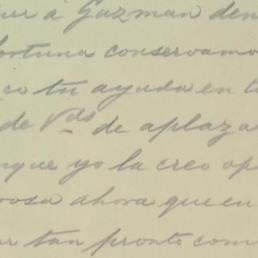 á Guzman den
fortuna conservamo
co tu ayuda en t
de Vds de aplaza
nque yo la creo op
rosa ahora que en
tan pronto com